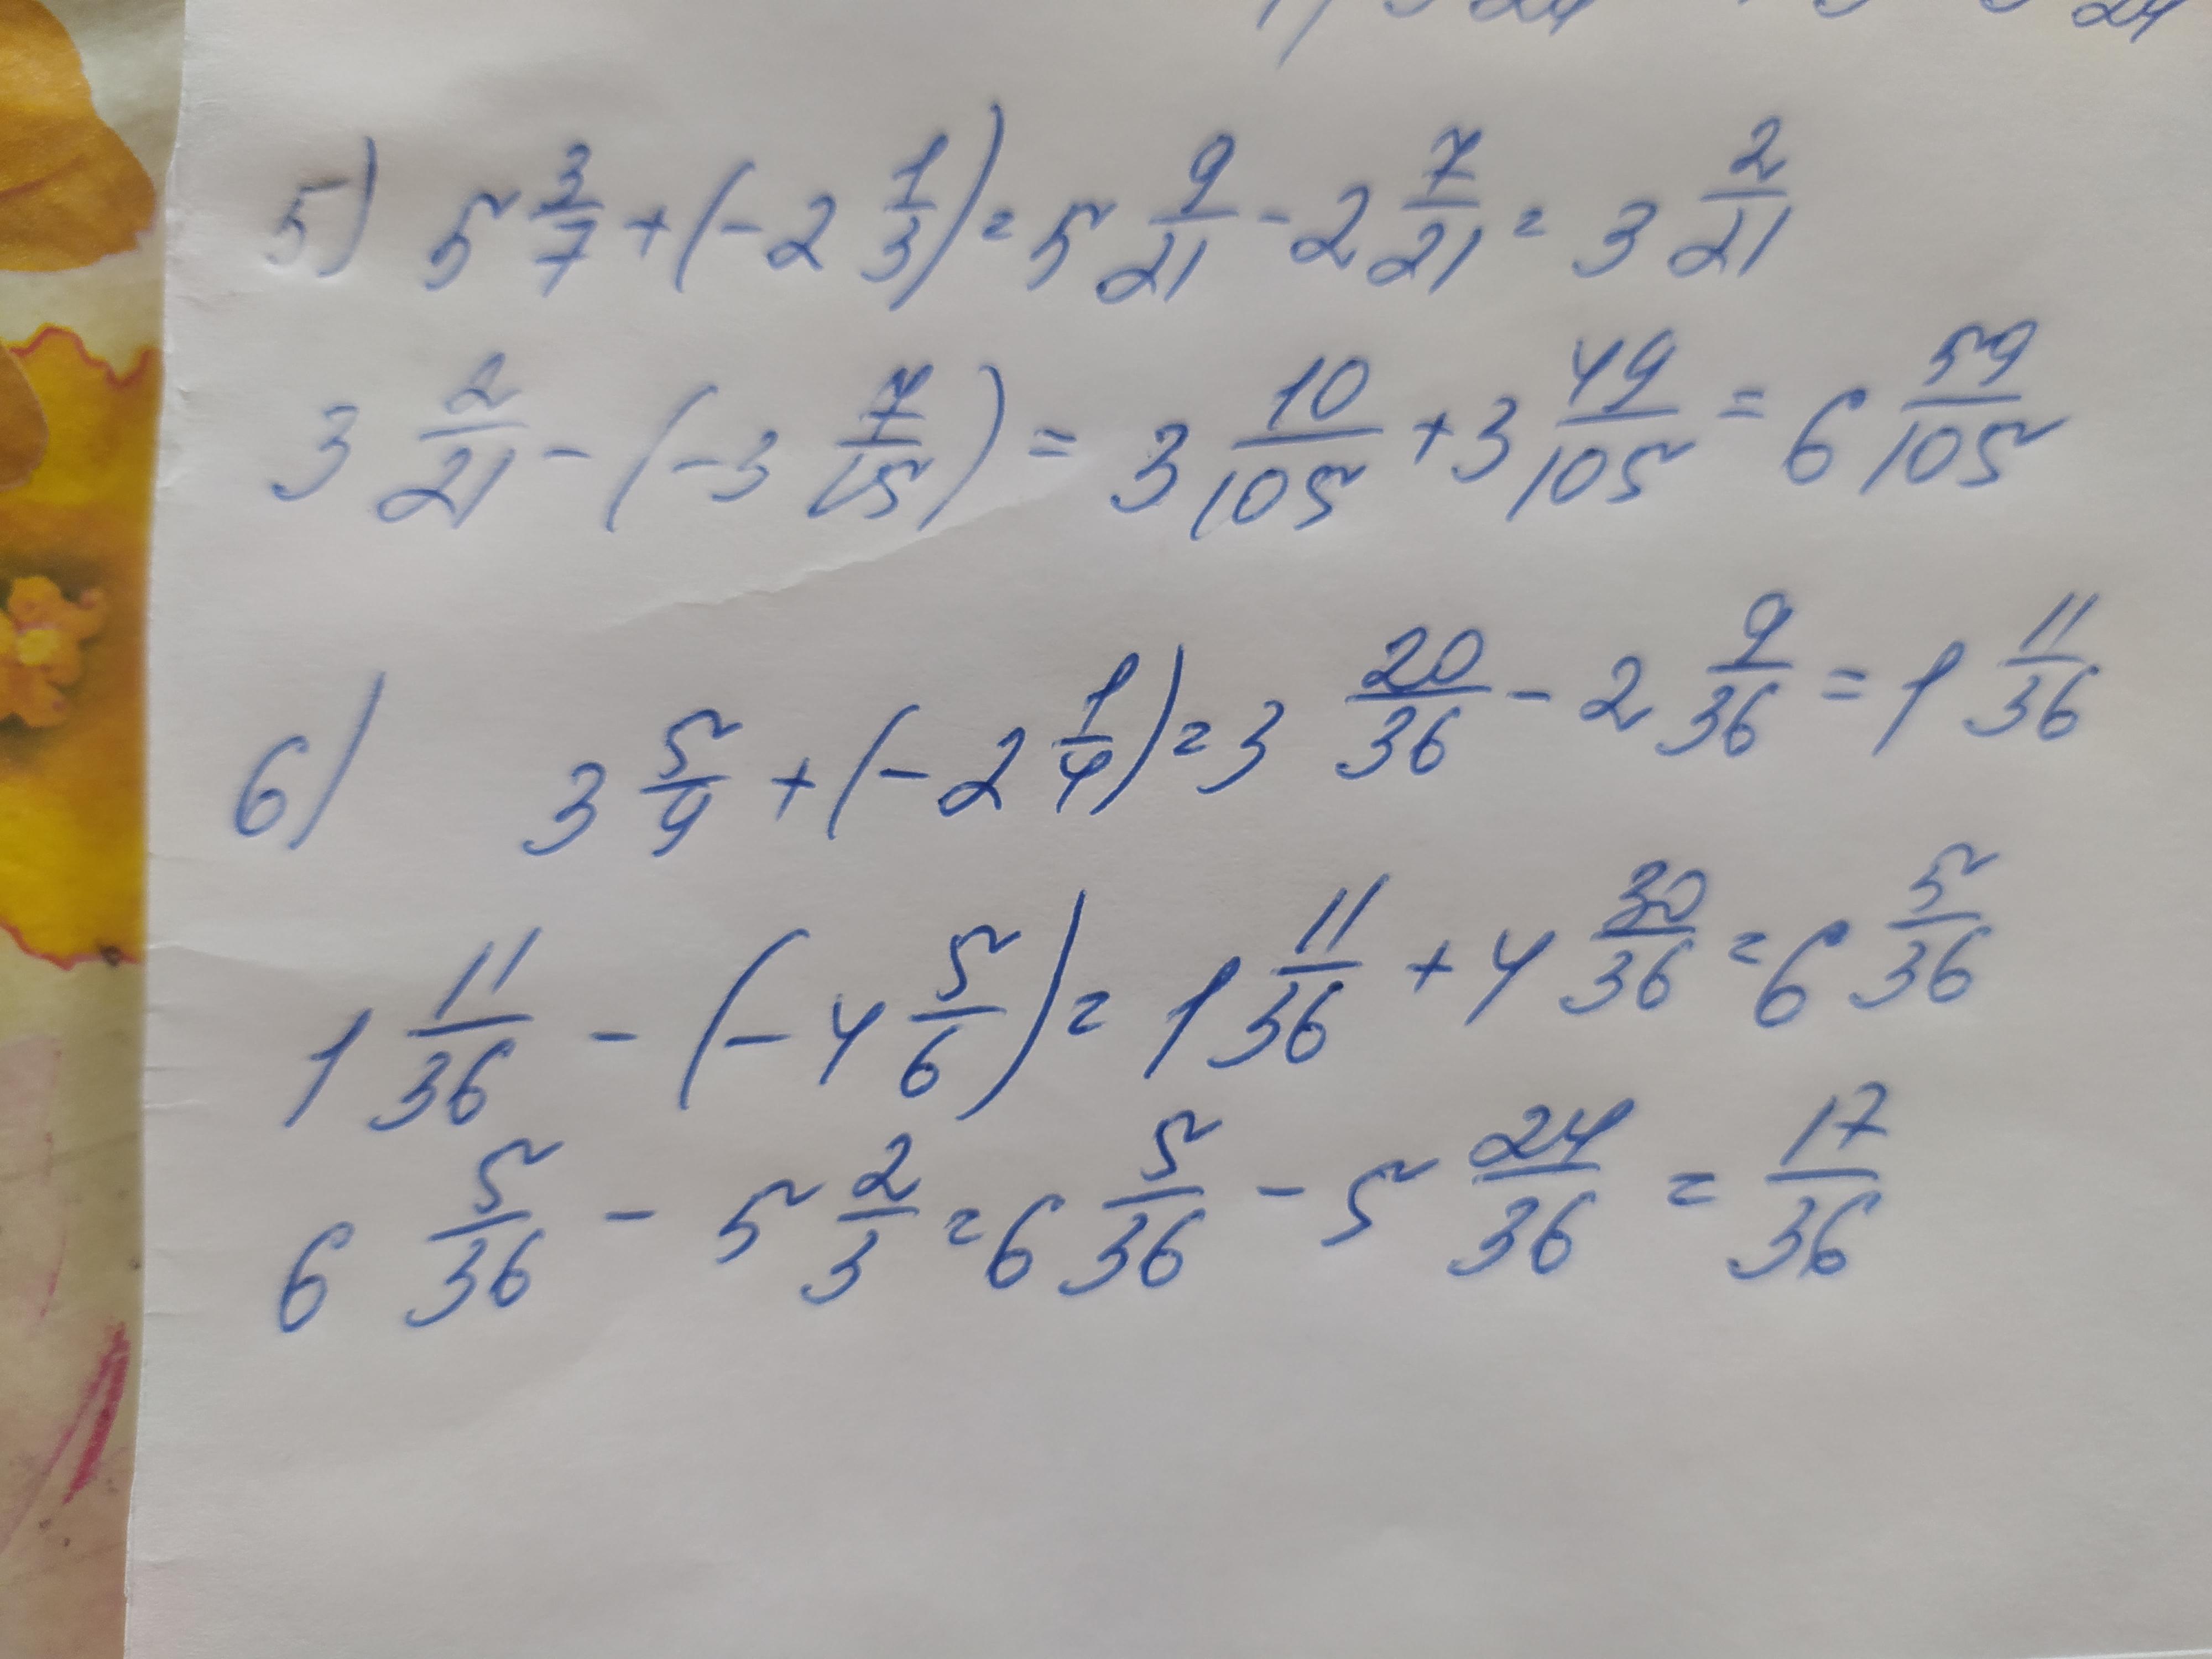 5) 5 3/7 + (-2 1/3) = 5 9/21 - 2 7/21 = 3 2/21
3 2/21 - (-3 7/15) = 3 10/105 + 3 49/105 = 6 59/105
6) 3 5/9 + (-2 1/4) = 3 20/36 - 2 9/36 = 1 11/36
1 11/36 - (-4 5/6) = 1 11/36 + 4 30/36 = 6 5/36
6 5/36 - 5 2/3 = 6 5/36 - 5 24/36 = 17/36